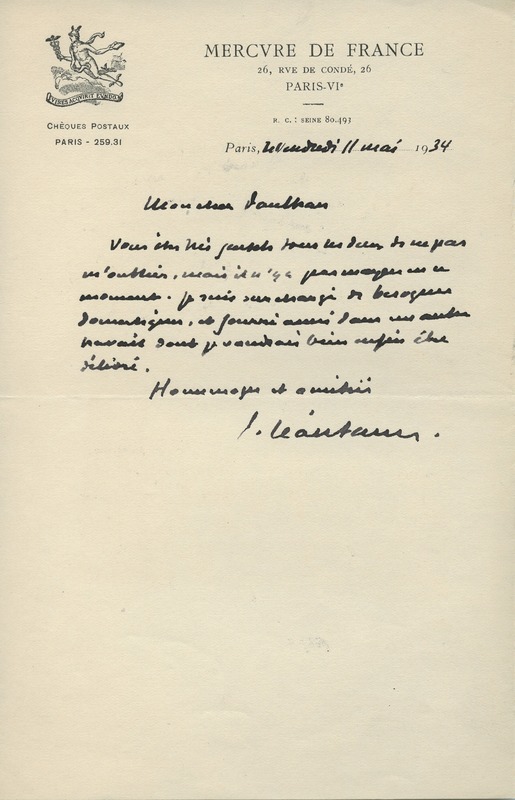 MERCVRE DE FRANCE
26, RVE DE CONDÉ, 26
PARIS-VIe
R. C. : SEINE 80.493
VIRES ACQVIRIT EVNDO
CHÈQUES POSTAUX
PARIS - 259.31
Paris, le Vendredi 11 mai 1934
Mon cher Paulhan
Vous êtes très gentils tous les deux de ne pas
m'oublier, mais il n'y a pas moyen en ce
moment. Je suis surchargé de besognes
domestiques, et fourré aussi dans un autre
travail dont je voudrais bien enfin être
délivré.
Hommages et amitiés
P. Léautaud.